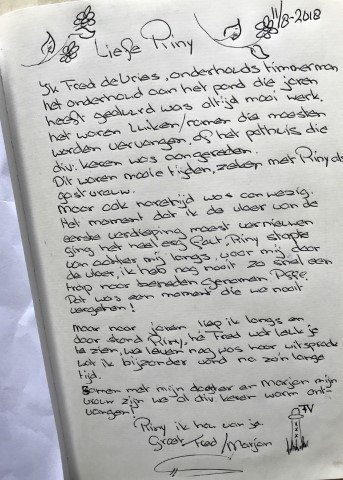 11/8-2018
Lieve Riny
Ik Fred de Vries, onderhouds timmerman
het onderhoud aan het pand die jaren
heeft geduurd was altijd mooi werk.
het waren luiken/ramen die moesten
worden vervangen, of het pothuis die
div. keren was aangereden.
Dit waren mooie tijden, zeker met Riny als
gastvrouw.
Maar ook narestijd was aanwezig.
Het moment dat ik de vloer van de
eerste verdieping moest vernieuwen
ging het heel erg fout, Riny stapte
van achter mij langs, voor mij, door
de vloer, ik heb nog nooit zo snel een
trap naar beneden genomen. Pfff.
Dat was een moment die we nooit
vergeten!
Maar na jaren, liep ik langs en
daar stond Riny, hé Fred wat leuk je
te zien, we leven nog was haar uitspraak
wat ik bijzonder vond na zo'n lange
tijd.
Samen met mijn dochter en Marjan mijn
vrouw zijn we al div. keer warm ont-
vangen!
Riny ik hou van je
Groet Fred/Marjan
FV